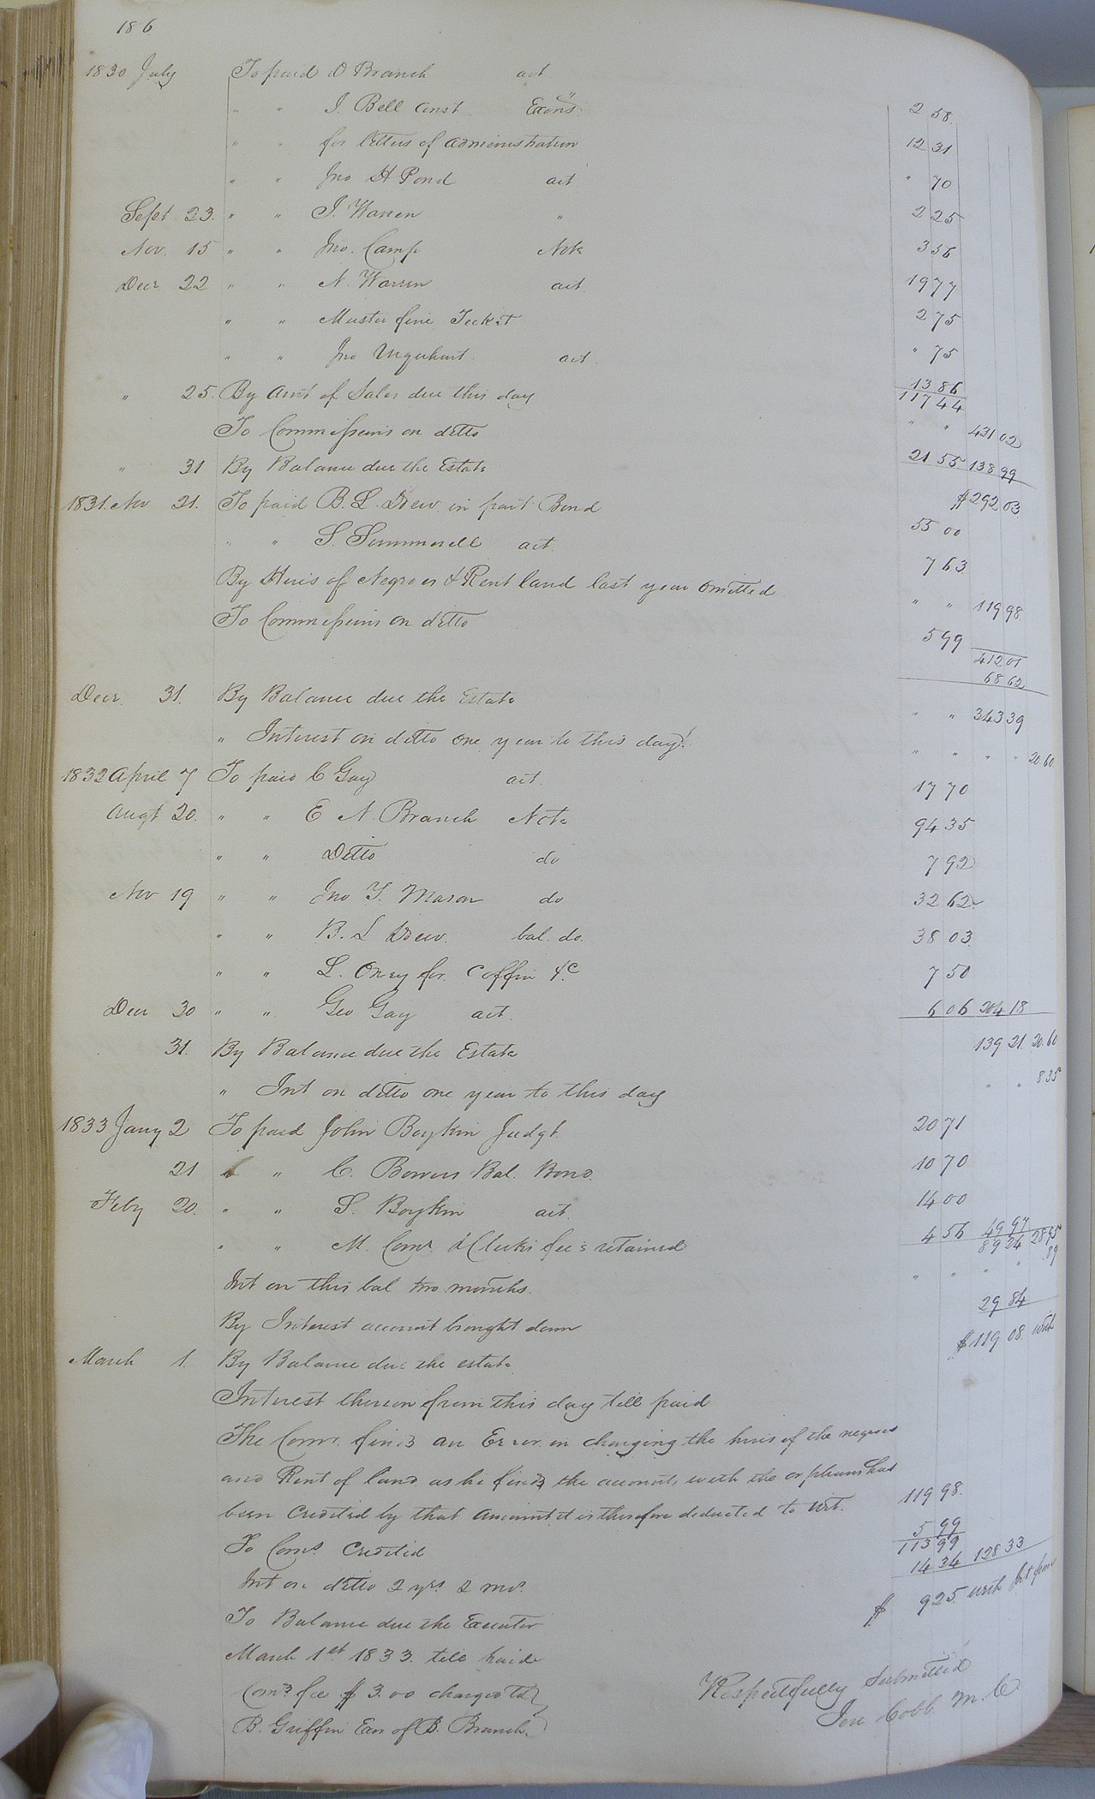 186
1830 July To paid D Branch act 2 58
" " J. Bell Const Exons 12 31
" " for letters of administration " 70
" " Jno H Pond act 2 25
Sept 23. " " J. Warren " 3 36
Nov. 15 " " Jno. Camp Note 19 77
Decr 22 " " N. Warren act 2 75
" " Muster fine Ticket " 75
" " Jno Urquhart act 13 86
" 25. By amt of Sales due this day 117 44 " " 431 02
To Commissions on ditto 21 55 138 99
" 31 By Balance due the Estate $292 03
1831 Nov 21. To paid B. L. Drew in part Bond 55 00
" " S. Summerell act 7 63
By Hires of Negroes & Rent land last year omitted " " 119 98
To Commissions on ditto 5 99
412 01
68 62
Decr. 31. By Balance due the Estate " " 343 39
" Interest on ditto one year to this day " " " " 20 60
1832 April 7 To paid C Gay act 17 70
Augt 20. " " E N. Branch Note 94 35
" " Ditto do 7 92
Nov 19 " " Jno Y. Mason do 32 62
" " B. L Drew. bal. do. 38 03
" " L. for Coffin &c 7 50
Decr 30 " " Geo Gay act. 6 06 204 18
31. By Balance due the Estate 139 21 20.60
" Int on ditto one year to this day " " 8 35
1833 Jany 2 To paid John Boykin Judgt. 20 71
21 " " C. Bowers Bal. Bond. 10 70
Feby 20. " " S. Boykin act. 14 00
" " M. Comr. & Clerks fee's retained 4 56 49 97 28 95
89 24 89
Int on this bal two months. " " " "
By Interest account brought down 29 84
March 1. By Balance due the estate $119 08 with
Interest thereon from this day till paid
The Comr. finds an Error in charging the hires of the negroes
and Rent of land as he finds the accounts with the orphans had
been Credited by that amount it is therefore deducted to wit. 119 98.
To Coms. Credited 5 99
113 99
Int on ditto 2 yrs 2 mos. 14 34 128 33
To Balance due the Executor $ 9 25 with int from
March 1st 1833. till paid
Comrs fee $3.00 charged to
B. Griffin Exr of B. Branch.
Respectfully Submitted
Jere Cobb. M. C